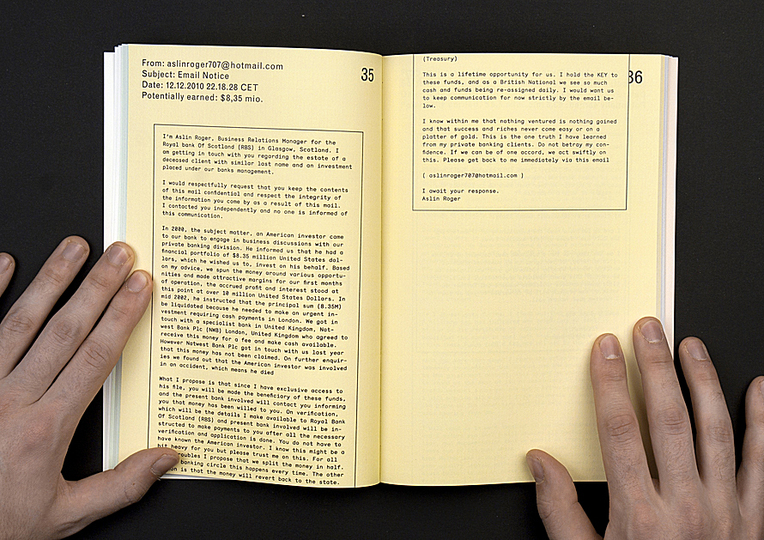 From: aslinroger707@hotmail.com
Subject: Email Notice
Date: 12.12.2010 22.18.28 CET
Potentially earned: $8,35 mio.
35
I'm Aslin Roger, Business Relations Manager for the
Royal bank Of Scotland (RBS) in Glasgow, Scotland. I
am getting in touch with you regarding the estate of a
deceased client with similar last name and an investment
placed under our banks management.
I would respectfully request that you keep the contents
of this mail confidential and respect the integrity of
the information you come by as a result of this mail.
I contacted you independently and no one is informed of
this communication.
In 2000, the subject matter, an American investor came
to our bank to engage in business discussions with our
private banking division. He informed us that he had a
financial portfolio of $8.35 million United States dol-
lars, which he wished us to, invest on his behalf. Based
on my advice, we spun the money around various opportu-
nities and made attractive margins for our first months
of operation, the accrued profit and interest stood at
this point at over 10 million United States Dollars. In
mid 2002, he instructed that the principal sum (8.35M)
be liquidated because he needed to make an urgent in-
vestment requiring cash payments in London. We got in
touch with a specialist bank in United Kingdom, Nat-
west Bank Plc (NWB) London, United Kingdom who agreed to
receive this money for a fee and make cash available.
However Natwest Bank Plc got in touch with us last year
that this money has not been claimed. On further enquir-
ies we found out that the American investor was involved
in an accident, which means he died
What I propose is that since I have exclusive access to
his file, you will be made the beneficiary of these funds,
and the present bank involved will contact you informing
you that money has been willed to you. On verification,
which will be the details I make available to Royal Bank
Of Scotland (RBS) and present bank involved will be in-
structed to make payments to you after all the necessary
verification and application is done. You do not have to
have known the American investor. I know this might be a
bit heavy for you but please trust me on this. For all
troubles I propose that we split the money in half.
banking circle this happens every time. The other
is that the money will revert back to the state.
(Treasury)
36
This is a lifetime opportunity for us. I hold the KEY to
these funds, and as a British National we see so much
cash and funds being re-assigned daily. I would want us
to keep communication for now strictly by the email be-
low.
I know within me that nothing ventured is nothing gained
and that success and riches never come easy or on a
platter of gold. This is the one truth I have learned
from my private banking clients. Do not betray my con-
fidence. If we can be of one accord, we act swiftly on
this. Please get back to me immediately via this email
( aslinroger707@hotmail.com )
I await your response.
Aslin Roger